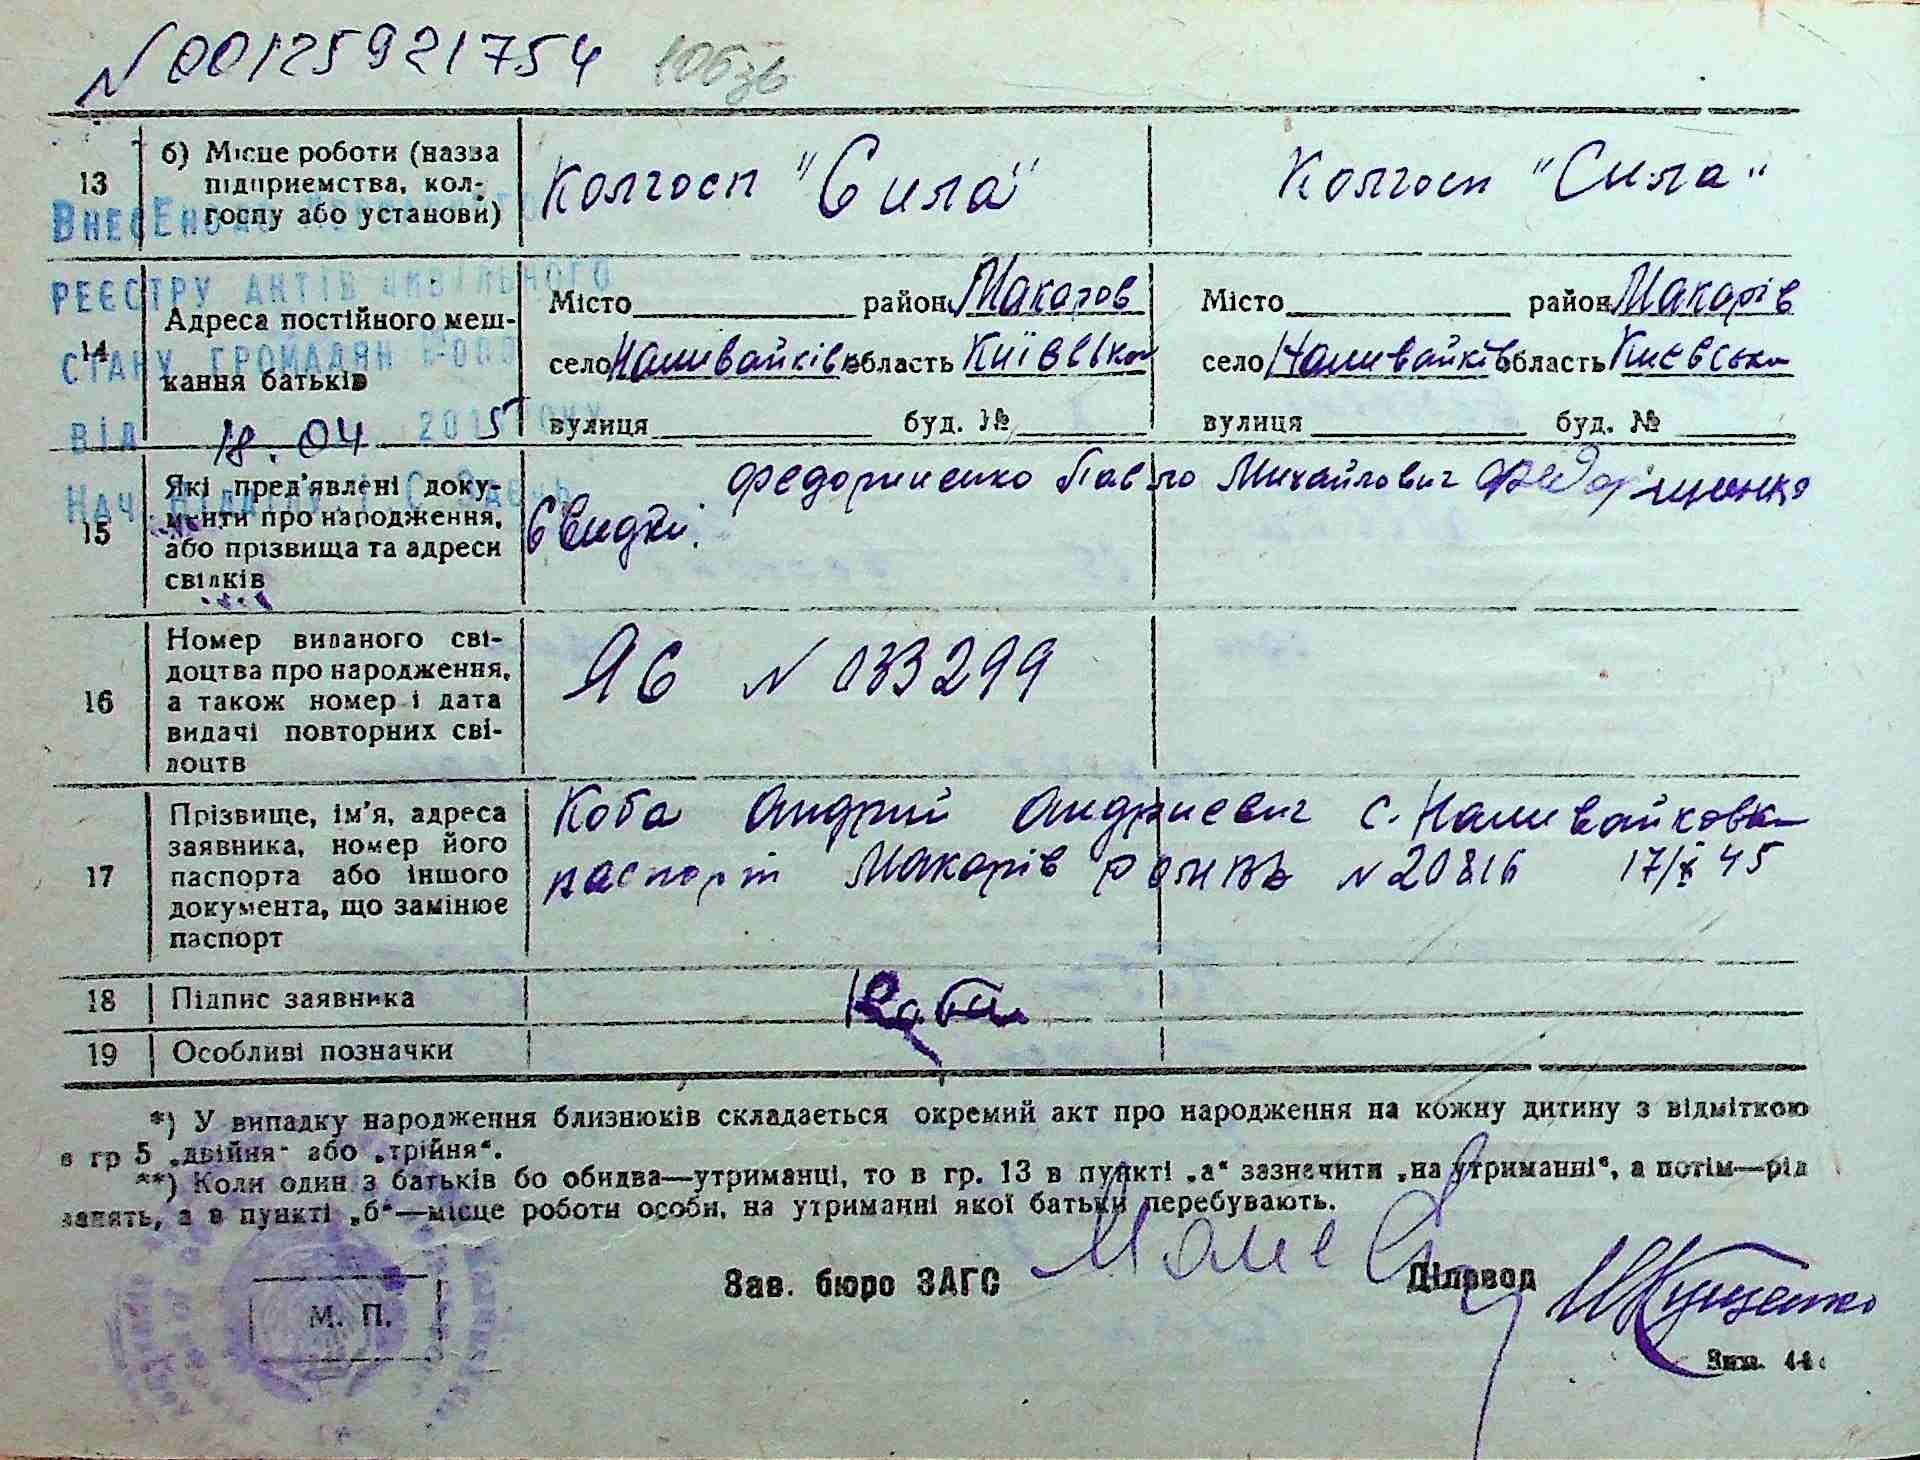 N00125921754 106зв
13 б) Місце роботи (назва підприємства, колгоспу або установи) Колгосп "Сила" Колгосп "Сила"
Внесено
реєстру актів цивільного
стану громадян
від 18.04 2015 року
Нач. відділу
14 Адреса постійного мешкання батьків
Місто район Макаров Місто район Макарів
село Наливайківк область Київська село Наливайків область Києвська
вулиця буд. № вулиця буд. №
15 Які пред'явлені документи про народження, або прізвища та адреси свідків
Федориненко Павло Михайлович
Свидки:
16 Номер виданого свідоцтва про народження, а також номер і дата видачі повторних свідоцтв
ЯБ N 033299
17 Прізвище, ім'я, адреса заявника, номер його паспорта або іншого документа, що замінює паспорт
Коба Андрий Андриевич с. Наливайковка
паспорт Макарів N 20816 17/X 45
18 Підпис заявника Коба
19 Особливі позначки
*) У випадку народження близнюків складається окремий акт про народження на кожну дитину з відміткою
в гр 5 „двійня" або „трійня".
**) Коли один з батьків бо обидва—утриманці, то в гр. 13 в пункті „а" зазначити „на утриманні", а потім—рід
занять, а в пункті „б"—місце роботи особи, на утриманні якої батьки перебувають.
Зав. бюро ЗАГС Діловод
М. П.